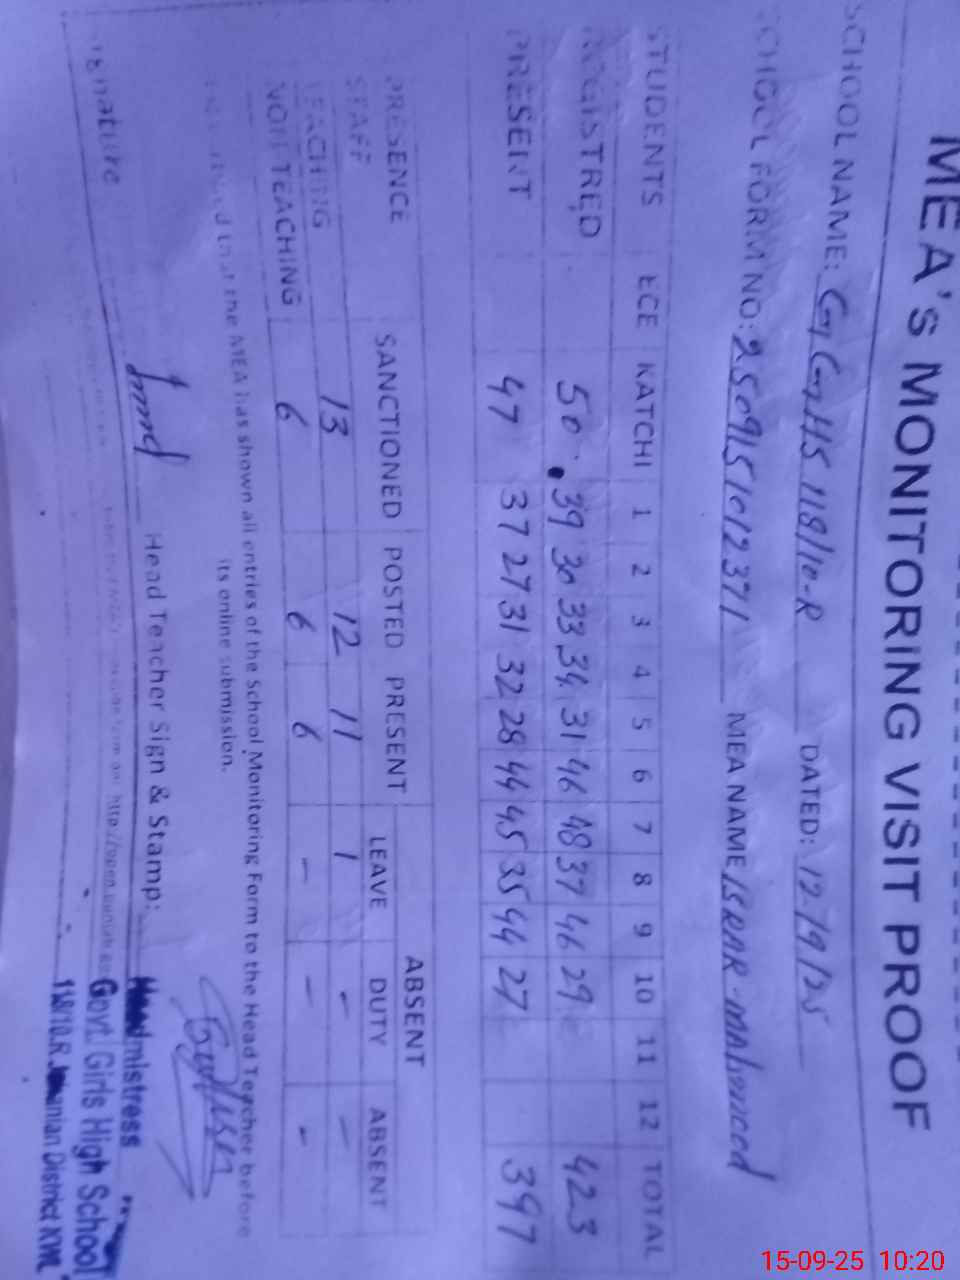 MEA's MONITORING VISIT PROOF
SCHOOL NAME: GGHS 118/10-R DATED: 12/9/25
SCHOOL FORM NO: 2509151012371 MEA NAME ISRAR mahmood
STUDENTS ECE KATCHI 1 2 3 4 5 6 7 8 9 10 11 12 TOTAL
REGISTRED 50 39 30 33 34 31 46 48 37 46 29 423
PRESENT 47 37 27 31 32 28 44 45 35 44 27 397
PRESENCE SANCTIONED POSTED PRESENT ABSENT
STAFF LEAVE DUTY ABSENT
TEACHING 13 12 11 1 - -
NON TEACHING 6 6 6 - - -
that the MEA has shown all entries of the School Monitoring Form to the Head Teacher before
its online submission.
Signature Head Teacher Sign & Stamp:
Headmistress
Govt. Girls High School
118/10.R. District KWL
15-09-25 10:20